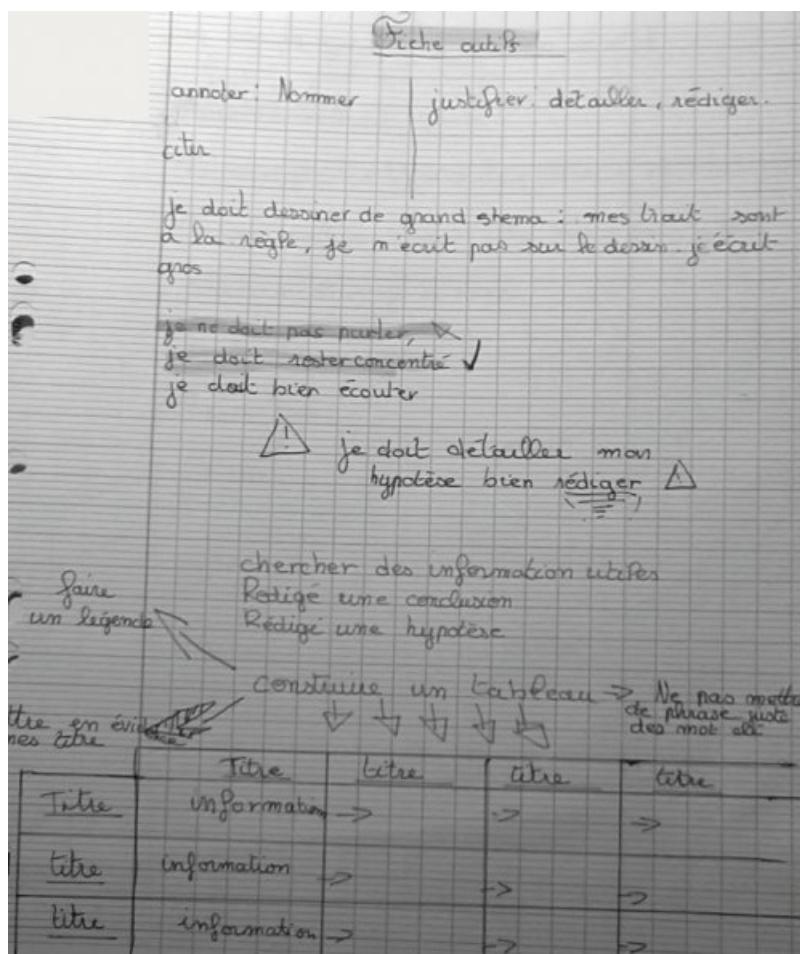 Fiche outils
annoter : Nommer
justifier : détailler, rédiger.
citer
je doit dessiner de grand shema : mes trait sont
à la règle, je n'écrit pas sur le dessin. j'écrit
gros
je ne doit pas parler,
je doit rester concentré ✓
je doit bien écouter
je doit detailler mon
hypotèse bien rédiger
chercher des information utiles
Redigé une conclusion
Rédigé une hypotèse
faire
un légende
construire un tableau → Ne pas mettre
de phrase juste
des mot clé
ttre en évidence
mes titre
Titre titre titre titre
Titre information → → →
titre information → → →
titre information → → →